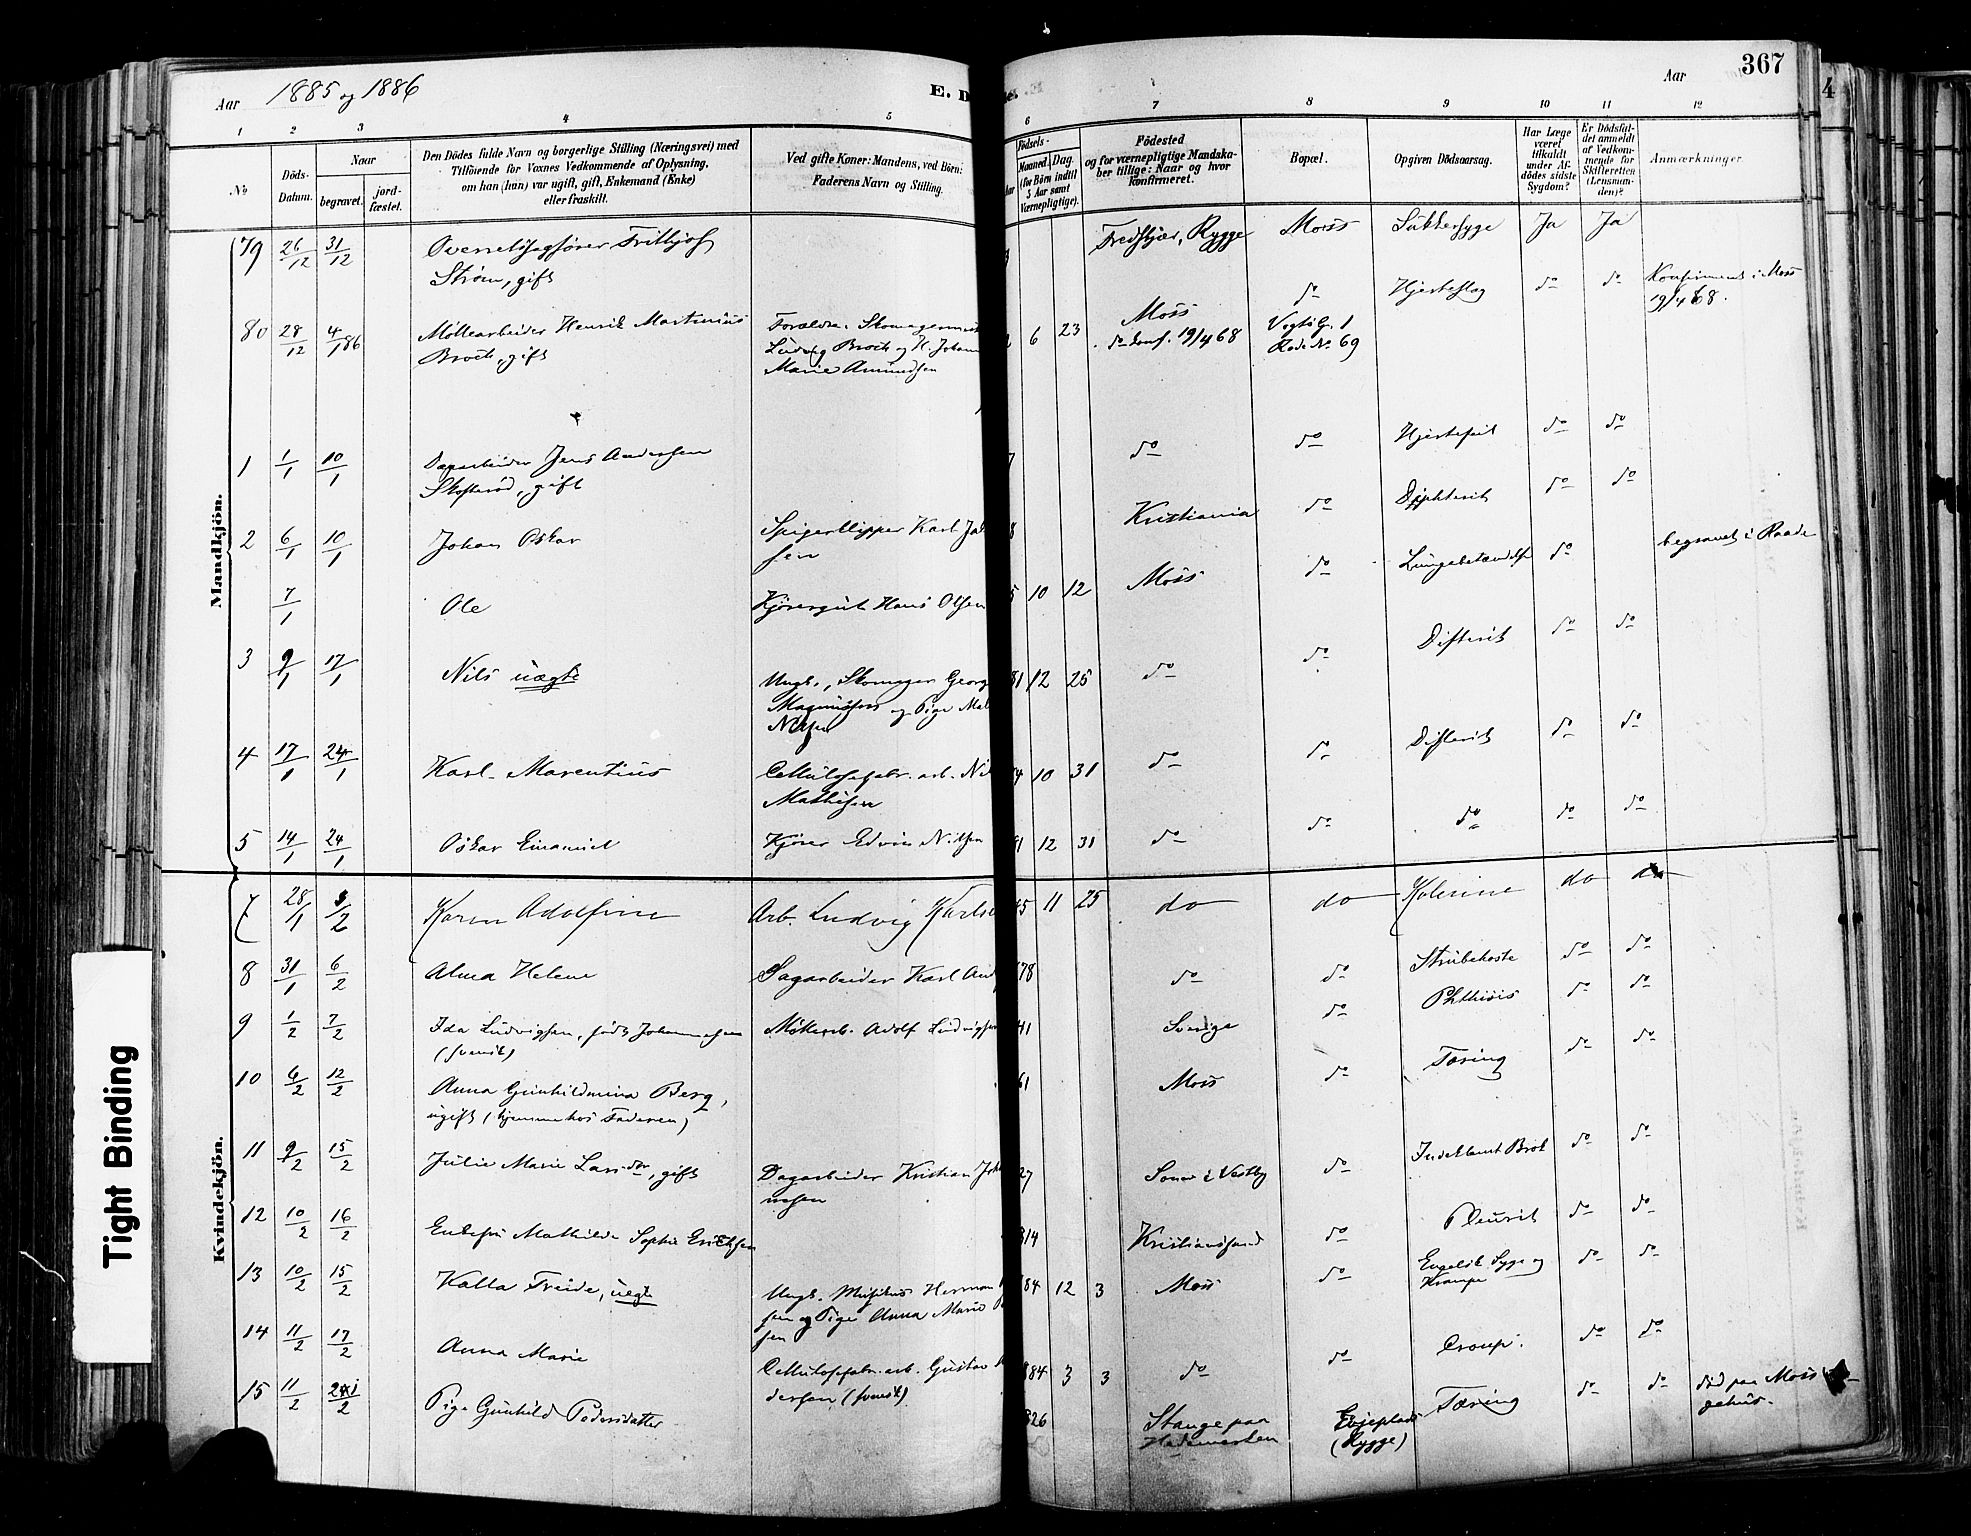 Aar 1885 og 1886
E. D
Aar
367
4
1 2 3 4 5
6 7 8 9 10 11 12
No
Döds-Datum.
Naar
begravet.
jord-fæstet.
Den Dödes fulde Navn og borgerlige Stilling (Næringsvei) med
Tilföiende for Voxnes Vedkommende af Oplysning,
om han (hun) var ugift, gift, Enkemand (Enke)
eller fraskilt.
Ved gifte Koner: Mandens, ved Börn:
Faderens Navn og Stilling.
Födsels-
Maaned. Dag.
(for Börn indtil
5 Aar samt
Værnepligtige).
Födested
og for værnepligtige Mandska-
ber tillige: Naar og hvor
konfirmeret.
Bopæl.
Opgiven Dödsaarsag.
Har Læge
været
tilkaldt
under Af-
dödes sidste
Sygdom?
Er Dödsfal-
det anmeldt
af Vedkom-
mende for
Skifteretten
(Lensman-
den)?
Anmærkninger.
Mandkjön.
79 26/12 31/12 Overretssagfører Frithjof
Strøm, gift
Rygge Moss Sukkersyge Ja Ja
80 28/12 4/1 86 Møllearbeider Henrik Martinius
Broch, gift
Forældre: Skomagermest
Ludvig Broch og H. Johan
Marie Amundsen
6 23 Moss
do konf. 19/4 68
do
Vogts G. 1
Rode No 69
Hjerteslag do do Konfirmeret i Moss
19/4 68.
1 1/1 10/1 Dagarbeider Jens Andersen
Skofterød, gift
do do Hjertefeil do do
2 6/1 10/1 Johan Oskar
Spigerklipper Karl Joh
sen
Kristiania do Diphterit do do
7/1 Ole
Kjøregut Hans Olsen
10 12 Moss do Lungebetændelse do begravet i Raade
3 9/1 17/1 Nils uægte
Ungk., Skomager Georg
Magnussen og Pige Mal
Nilsen
81 12 25 do do Difterit do do
4 17/1 24/1 Karl Marentius
Cellulosefabr. arb. Nil
Mathisen
10 31 do do Difterit do do
5 14/1 24/1 Oskar Emanuel
Kjører Edvin Nilsen
81 12 31 do do do do do
Kvindekjön.
7 28/1 5/2 Karen Adolfine
Arb. Ludvig Karlse
11 25 do do Kolerine do do
8 31/1 6/2 Alma Helene
Sagarbeider Karl And
78 do do Strubehoste do do
9 1/2 7/2 Ida Ludvigsen, født Johannesen
(svensk)
Møllearb. Adolf Ludvigsen
41 Sverige do Phthisis do do
10 6/2 12/2 Anna Gunhildmina Berg,
ugift (hjemme hos Faderen)
61 Moss do Tæring do do
11 9/2 15/2 Julie Marie Larsdtr, gift
Dagarbeider Kristian Joha
nesen
27 Soner i Vestby do Indeklemt Brok do do
12 10/2 16/2 Enkefru Mathilde Sophie Erichsen
814 Kristianssand do Pleurit do do
13 10/2 15/2 Kalla Freide, uægte
Ungk. Musikus Herman
sen og Pige Anna Marie
sen
84 12 3 Moss do Engelsk Syge og
Krampe do do
14 11/2 17/2 Anna Marie
Cellulosefabr. arb. Gustav
dersen (svensk)
884 3 3 do do Croup. do do
15 11/2 21/2 Pige Gunhild Pedersdatter
826 Stange paa
Hedemarken
Evjeplads
(Rygge)
Tæring do do død paa Moss
gehus.
Tight Binding